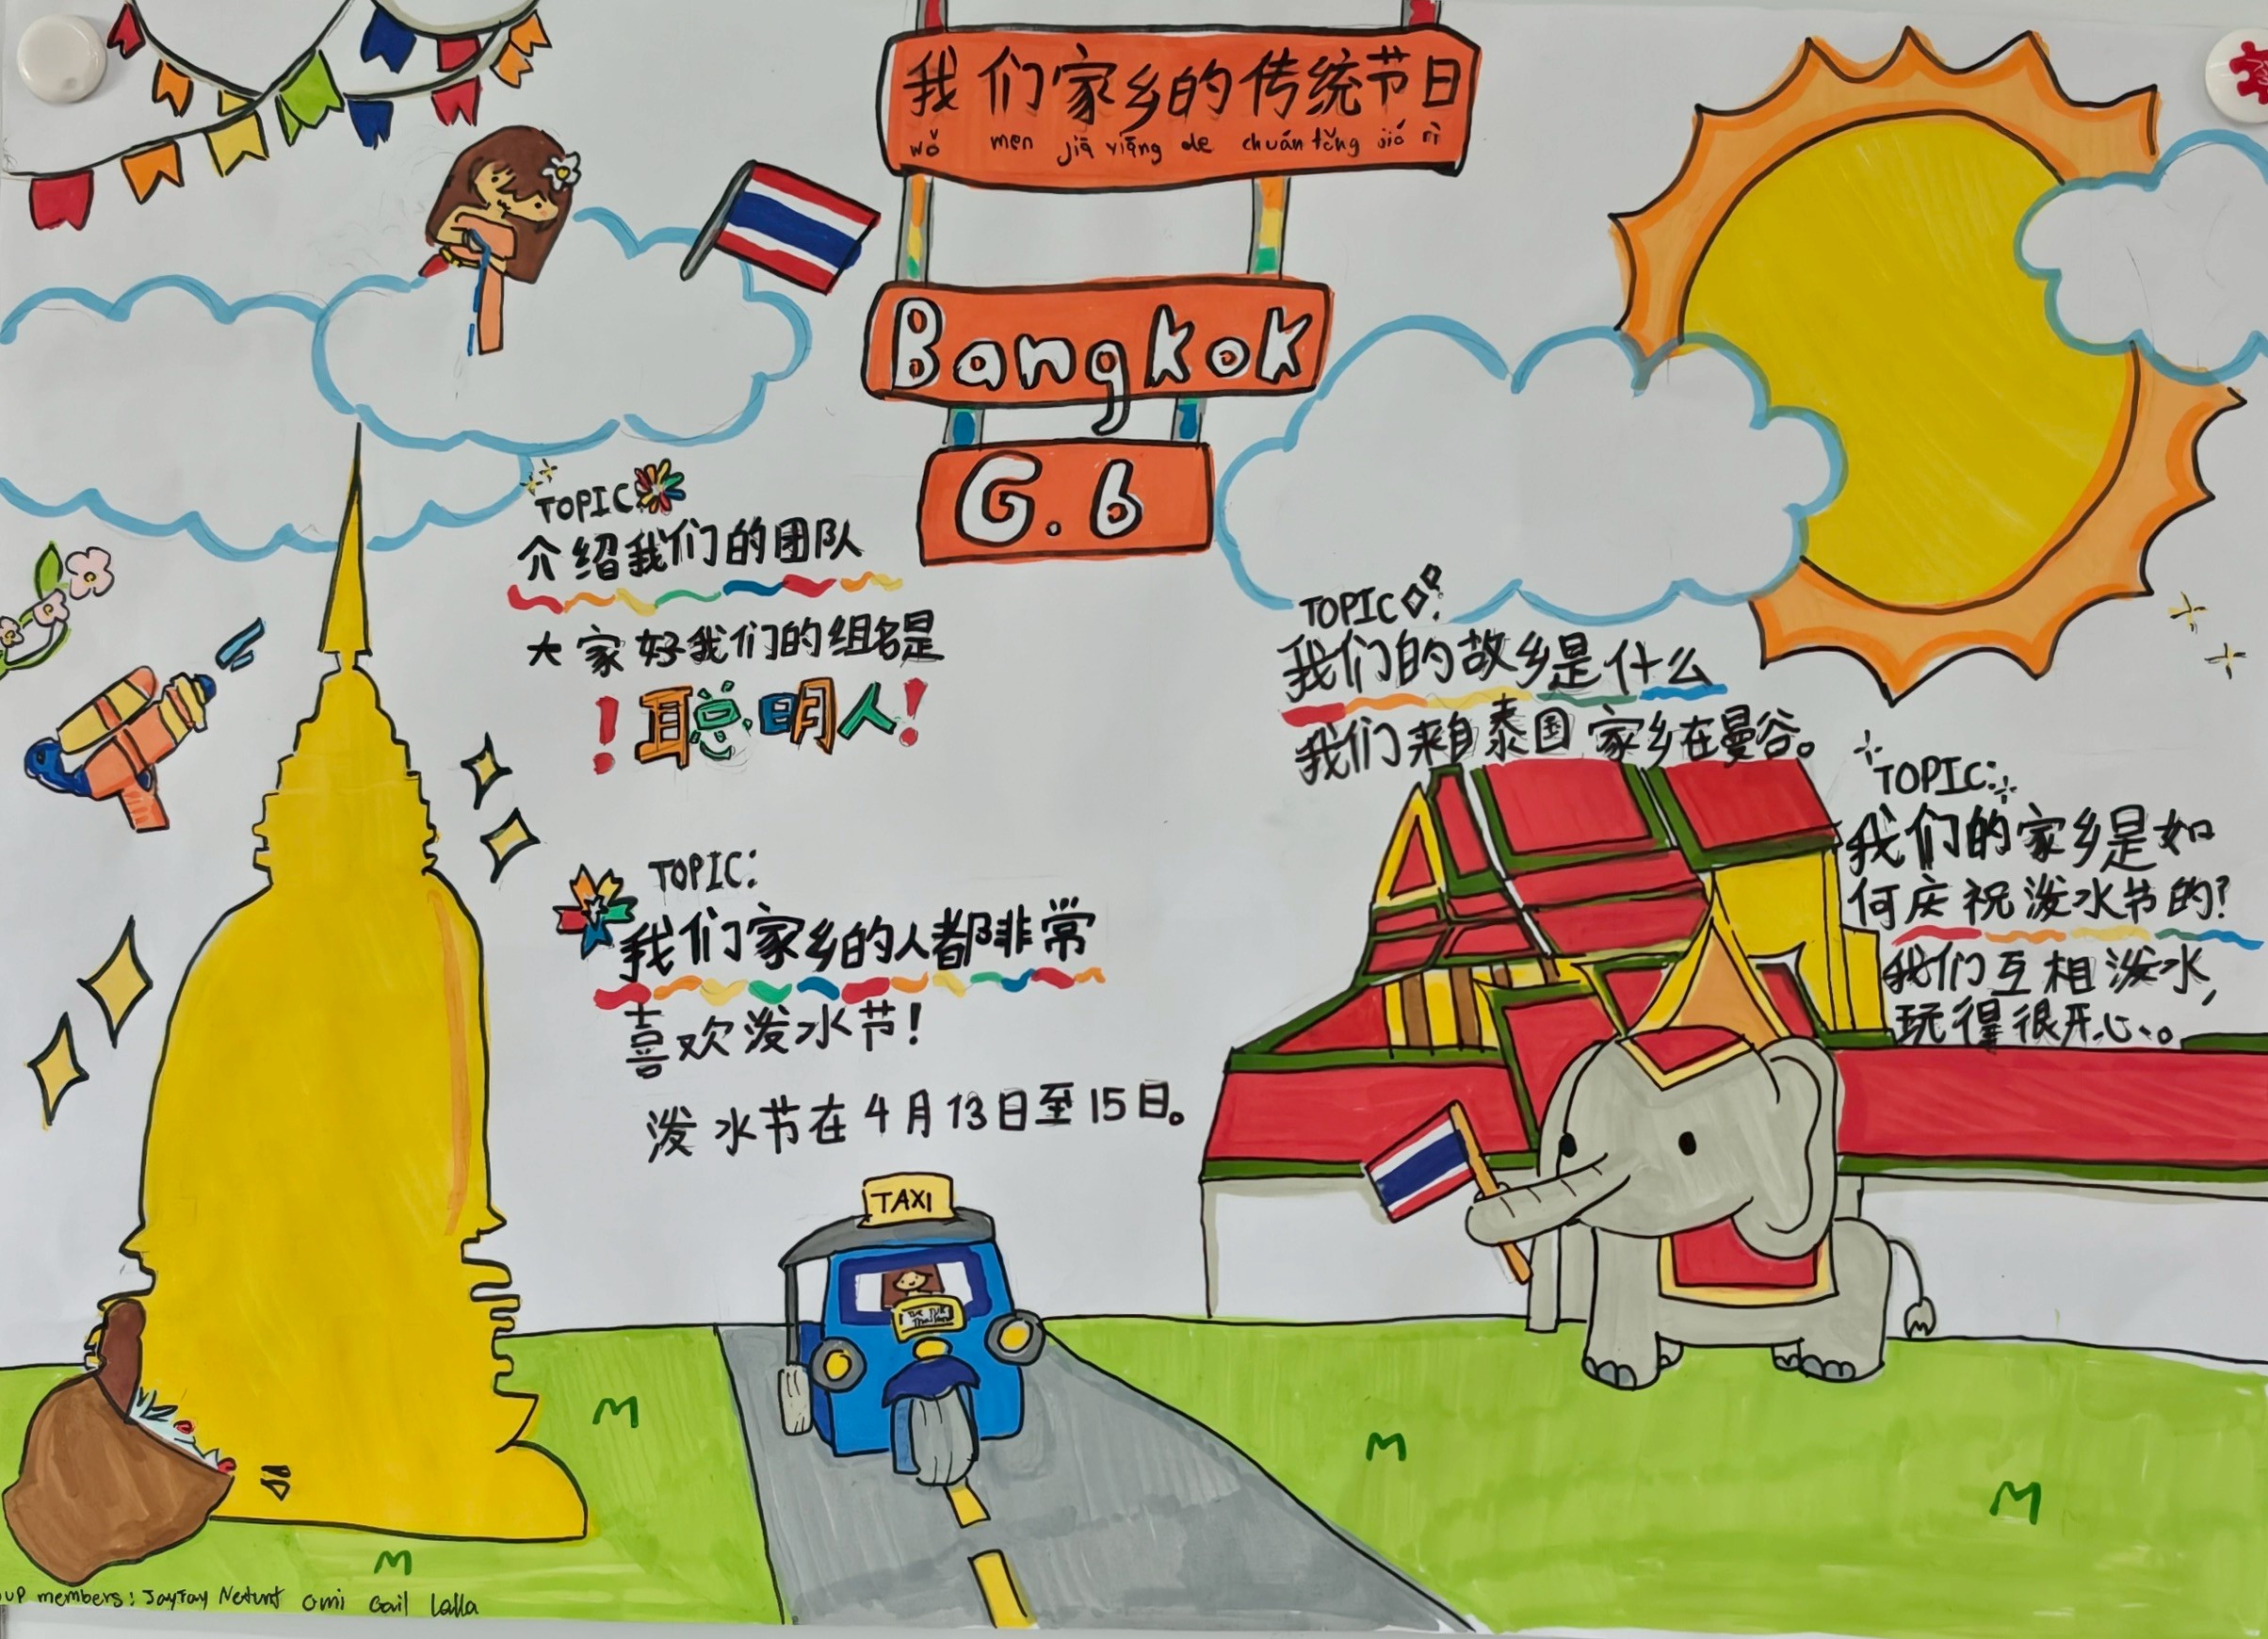 我们家乡的传统节日
wǒ men jiā xiāng de chuán tǒng jié rì
Bangkok
G.6
TOPIC:
介绍我们的团队
大家好我们的组名是
!聪明人!
TOPIC:
我们家乡的人都非常
喜欢泼水节!
泼水节在4月13日至15日。
TOPIC:
我们的故乡是什么
我们来自泰国家乡在曼谷。
TOPIC:
我们的家乡是如
何庆祝泼水节的?
我们互相泼水,
玩得很开心。
TAXI
members: JayJay Omi Gail Lalla